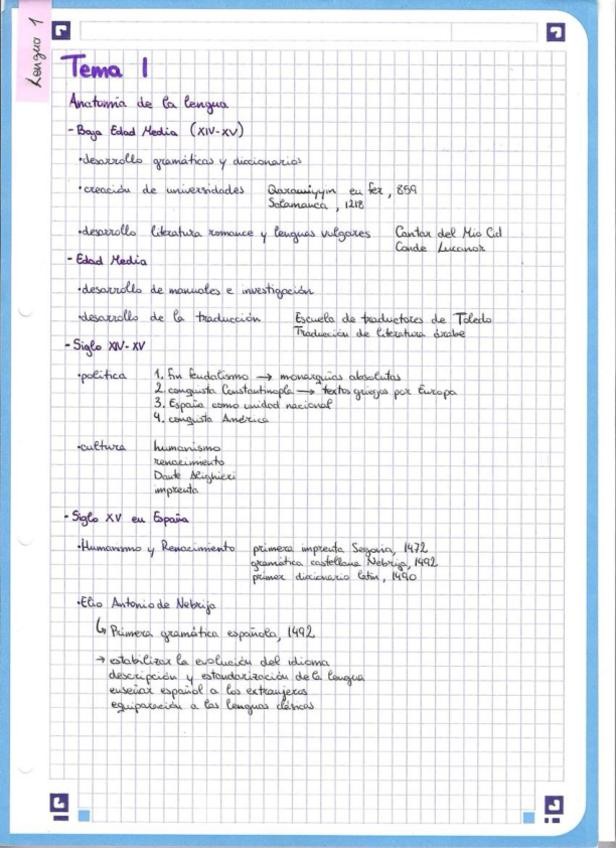 Lengua 1
Tema 1
Anatomía de la lengua
- Baja Edad Media (XIV-XV)
·desarrollo gramáticas y diccionarios
·creación de universidades Qarawiyyin en fez, 859
Salamanca, 1218
·desarrollo literatura romance y lenguas vulgares Cantar del Mio Cid
Conde Lucanor
- Edad Media
·desarrollo de manuales e investigación
·desarrollo de la traducción Escuela de traductores de Toledo
Traducción de literatura árabe
- Siglo XIV-XV
·política 1. fin feudalismo → monarquías absolutas
2. conquista Constantinopla → textos griegos por Europa
3. España como unidad nacional
4. conquista América
·cultura humanismo
renacimiento
Dante Alighieri
imprenta
- Siglo XV en España
·Humanismo y Renacimiento primera imprenta Segovia, 1472
gramática castellana Nebrija, 1492
primer diccionario latín, 1490
·Elio Antonio de Nebrija
↳ Primera gramática española, 1492
→ estabilizar la evolución del idioma
descripción y estandarización de la lengua
enseñar español a los extranjeros
equiparación a las lenguas clásicas